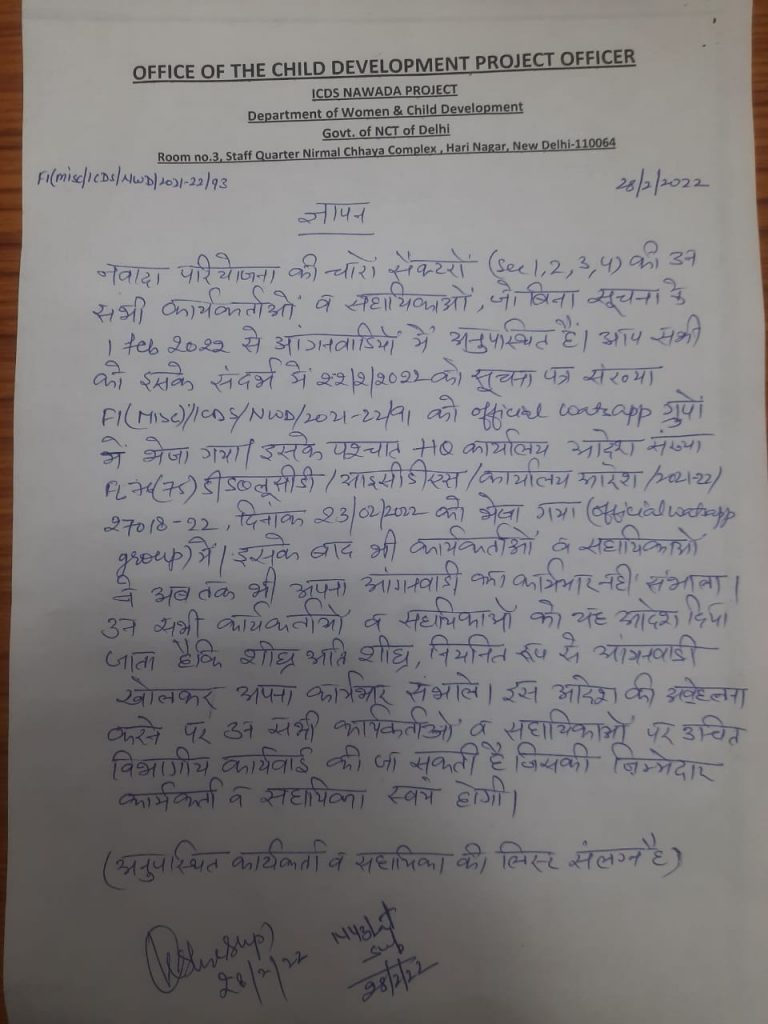 OFFICE OF THE CHILD DEVELOPMENT PROJECT OFFICER
ICDS NAWADA PROJECT
Department of Women & Child Development
Govt. of NCT of Delhi
Room no.3, Staff Quarter Nirmal Chhaya Complex , Hari Nagar, New Delhi-110064
F1(misc)/ICDS/NWD/2021-22/93 28/2/2022
ज्ञापन
नवादा परियोजना की चारों सैक्टरों (Sec 1,2,3,4) की उन
सभी कार्यकर्ताओं व सहायिकाओं, जो बिना सूचना के
1 Feb 2022 से आंगनवाडियों में अनुपस्थित हैं। आप सभी
को इसके संदर्भ में 22/2/2022 को सूचना पत्र संख्या
F1(MISC)/ICDS/NWD/2021-22/91 को official watsapp ग्रुपों
में भेजा गया। इसके पश्चात HQ कार्यालय आदेश संख्या
(75) डीडब्लूसीडी/आइसीडीएस/कार्यालय आदेश/2021-22/
27018-22, दिनांक 23/02/2022 को भेजा गया (official watsapp
group) में। इसके बाद भी कार्यकर्ताओं व सहायिकाओं
ने अब तक भी अपना आंगनवाडी का कार्यभार नही संभाला।
उन सभी कार्यकर्ताओं व सहायिकाओं को यह आदेश दिया
जाता है कि शीघ्र अति शीघ्र, नियमित रूप से आंगनवाडी
खोलकर अपना कार्यभार संभाले। इस आदेश की अवहेलना
करने पर उन सभी कार्यकर्ताओं व सहायिकाओं पर उचित
विभागीय कार्यवाई की जा सकती है जिसकी जिम्मेदार
कार्यकर्ता व सहायिका स्वयं होगी।
(अनुपस्थित कार्यकर्ता व सहायिका की लिस्ट संलग्न है)
28/2/22
28/2/22